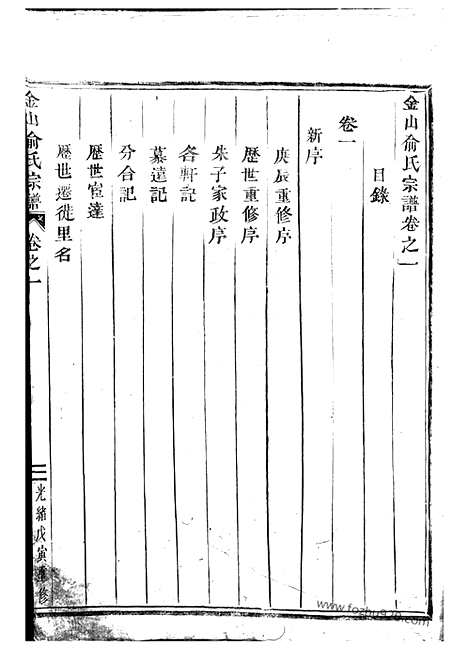 金山俞氏宗譜卷之一
目錄
卷一
新序
庚辰重修序
歷世重修序
朱子家政序
各軒記
慕達記
分合記
歷世宦達
歷世遷徙里名
金山俞氏宗譜
卷之一
二
光緒戊寅重修
www.fozhu920.com